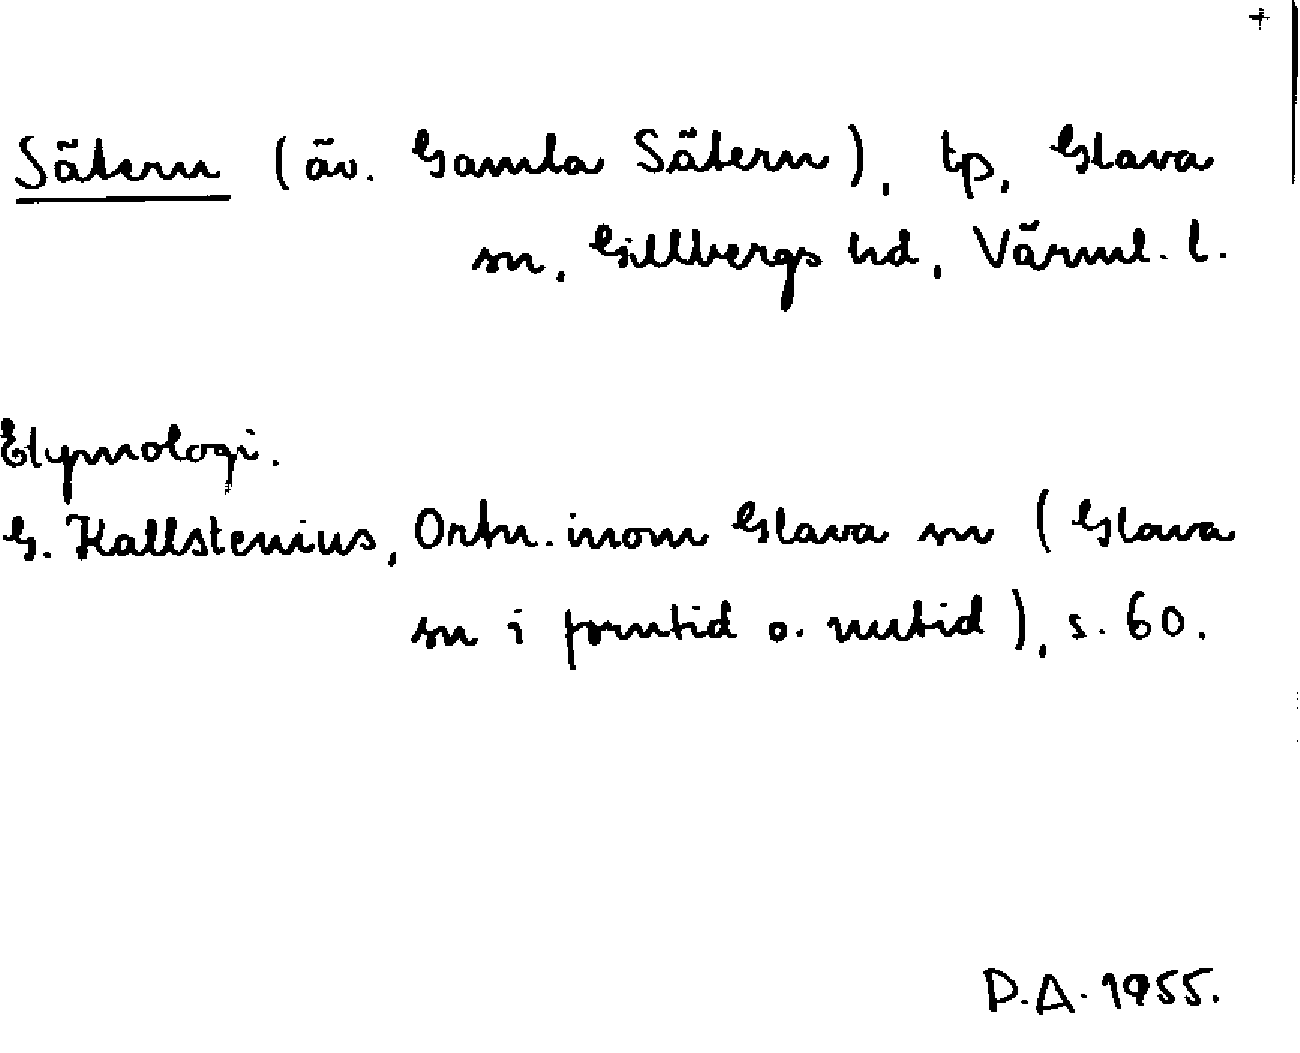 +
Sätern (äv. Gamla Sätern), tp, Glava
sn, Gillbergs hd, Värml. l.
Etymologi.
G. Kallstenius, Ortn. inom Glava sn (Glava
sn i forntid o. nutid), s. 60.
D.A. 1955.